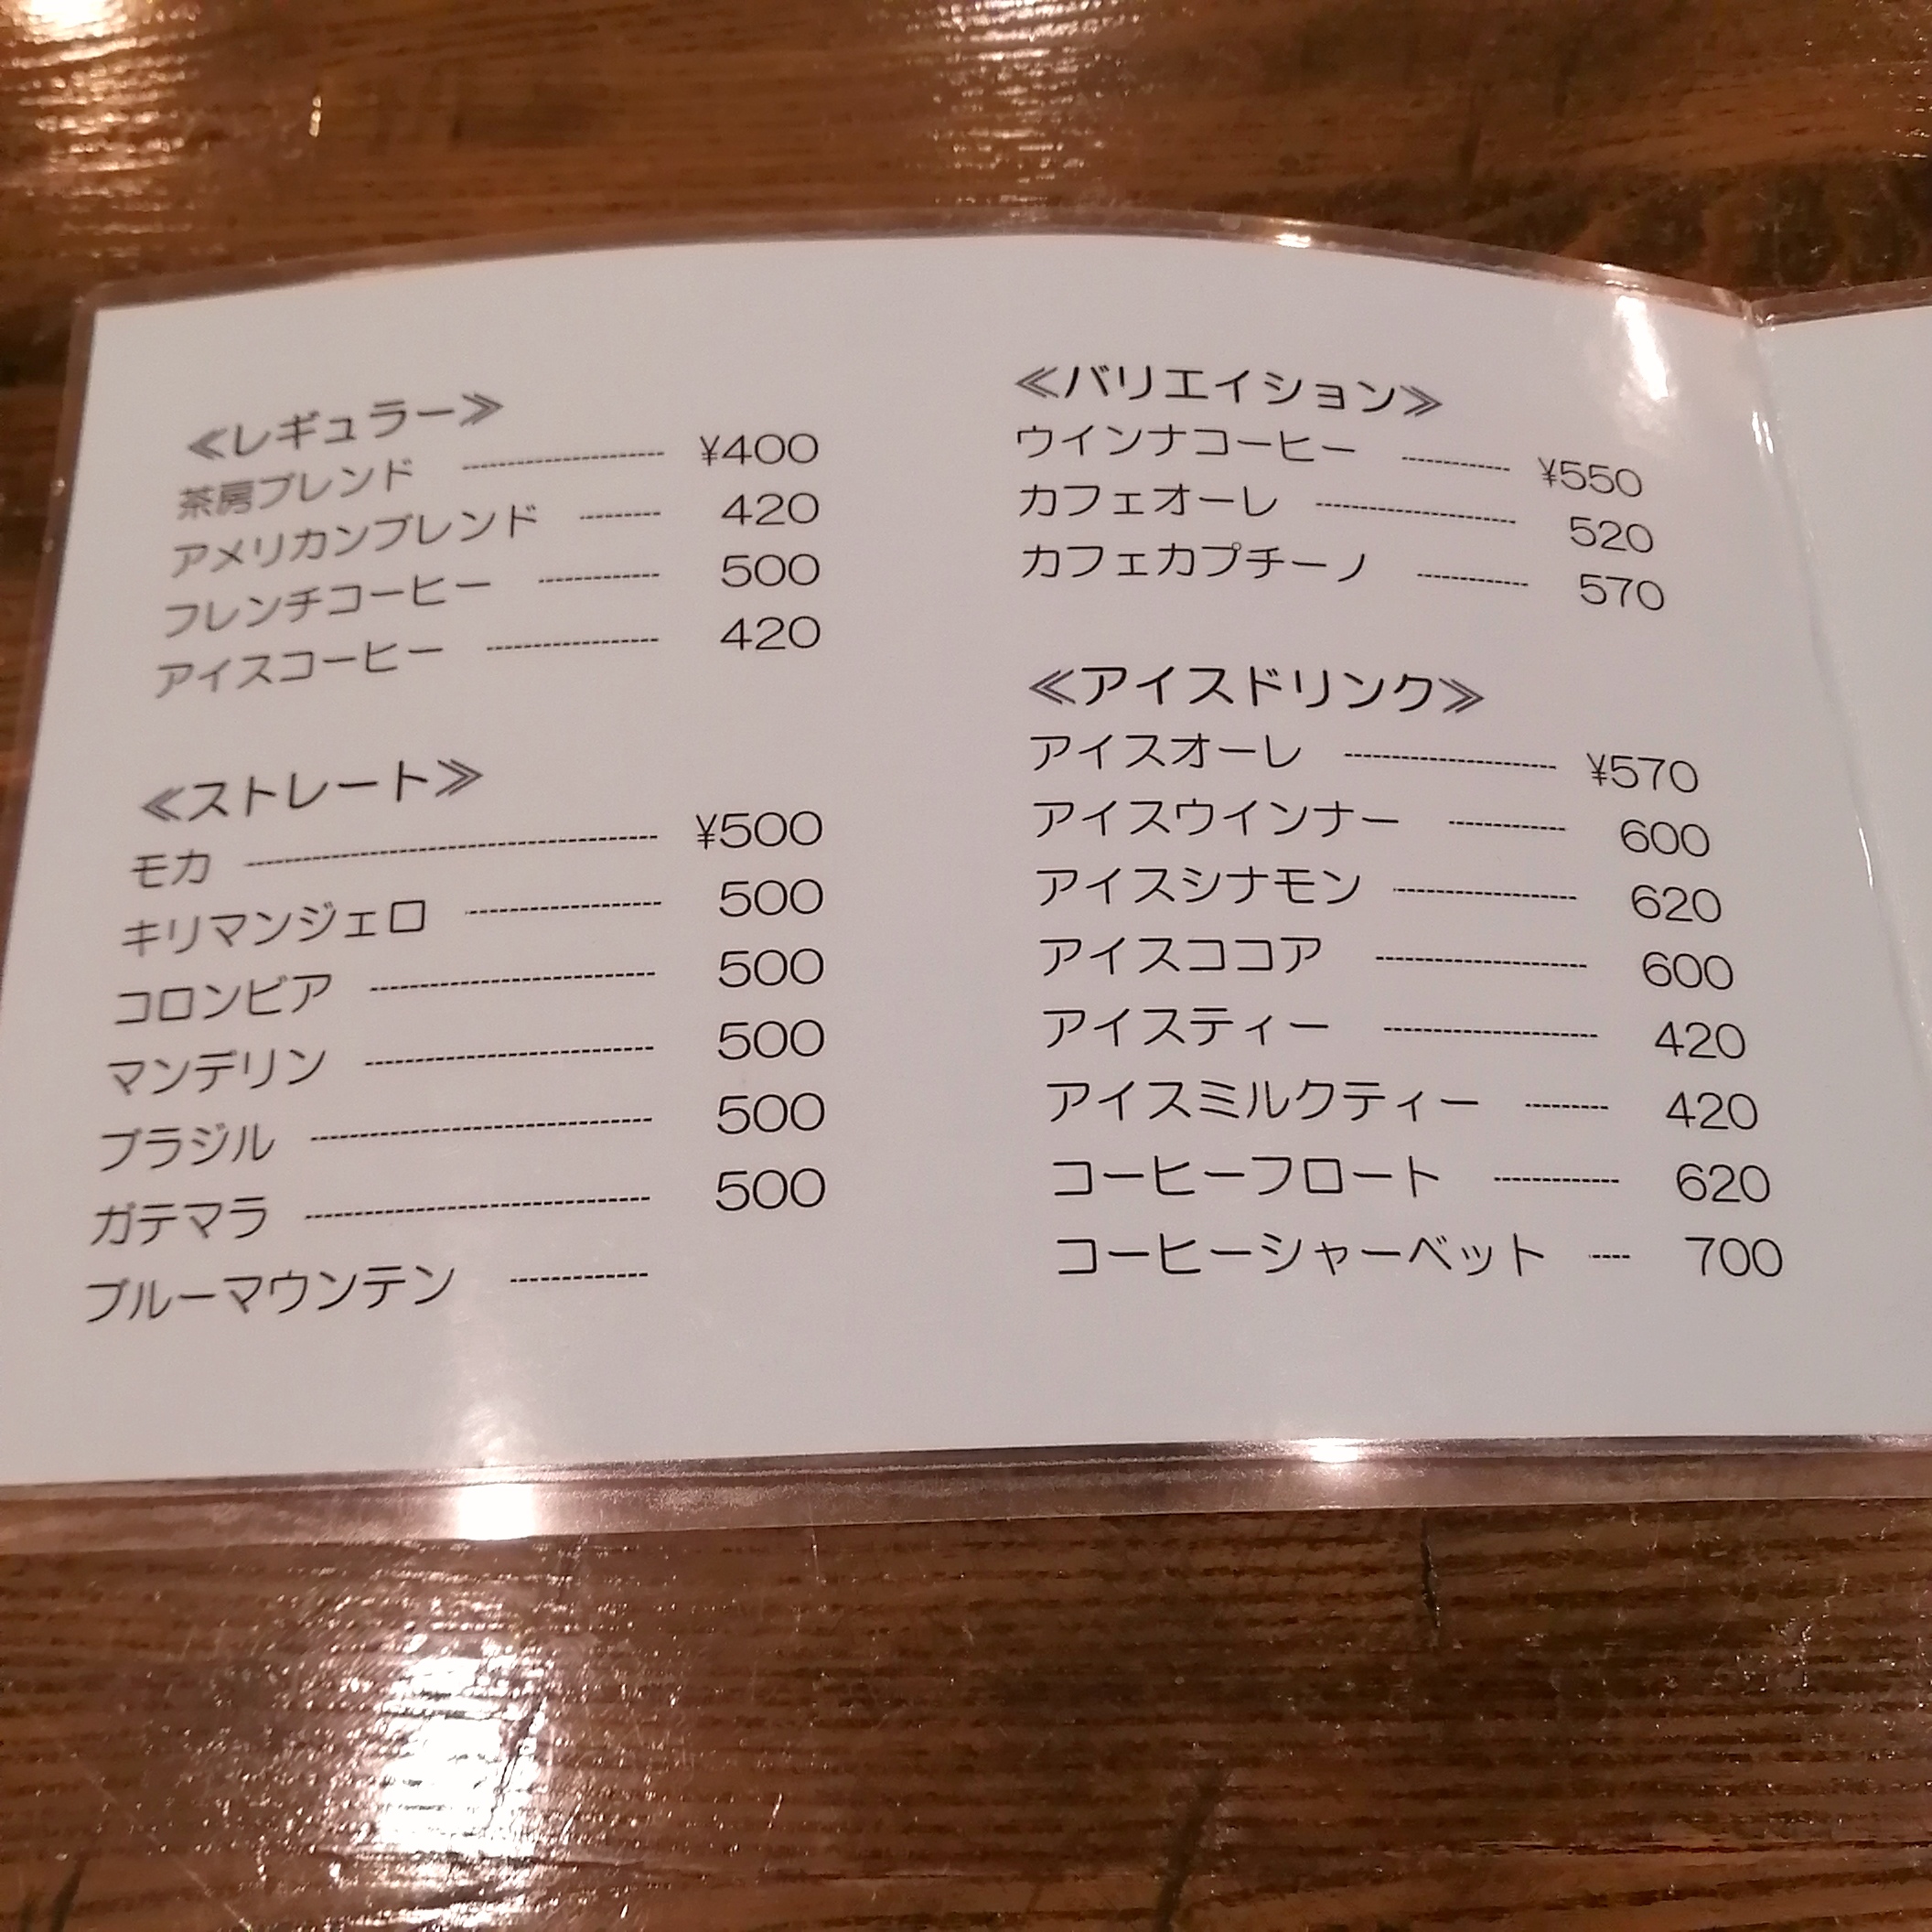 ≪レギュラー≫
茶房ブレンド ------------ ¥400
アメリカンブレンド ------ 420
フレンチコーヒー -------- 500
アイスコーヒー ---------- 420
≪ストレート≫
モカ -------------------- ¥500
キリマンジェロ ---------- 500
コロンビア -------------- 500
マンデリン -------------- 500
ブラジル ---------------- 500
ガテマラ ---------------- 500
ブルーマウンテン --------
≪バリエイション≫
ウインナコーヒー -------- ¥550
カフェオーレ ------------ 520
カフェカプチーノ -------- 570
≪アイスドリンク≫
アイスオーレ ------------ ¥570
アイスウインナー -------- 600
アイスシナモン ---------- 620
アイスココア ------------ 600
アイスティー ------------ 420
アイスミルクティー ------ 420
コーヒーフロート -------- 620
コーヒーシャーベット ---- 700